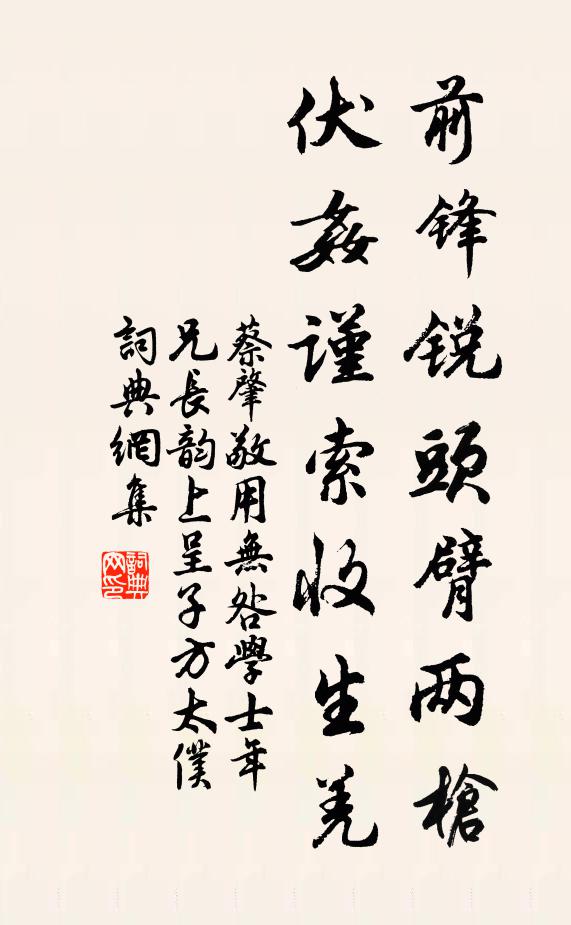 前鋒銳頭臂两槍
伏姦謹索收生羌
蔡肇敬用無咎學士年
兄長韵上呈子方太僕
詞典網集
詞典
网印